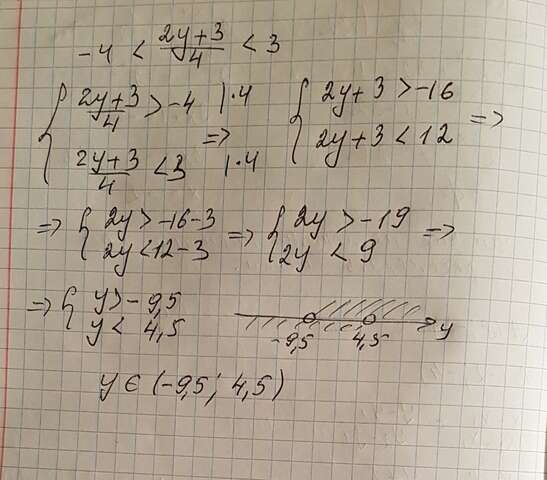 -4 < (2y+3)/4 < 3
{ (2y+3)/4 > -4 | ·4 => { 2y+3 > -16
(2y+3)/4 < 3 | ·4 2y+3 < 12 =>
=> { 2y > -16-3 => { 2y > -19 =>
2y < 12-3 2y < 9
=> { y > -9,5
y < 4,5
-9,5 4,5 y
y ∈ (-9,5; 4,5)